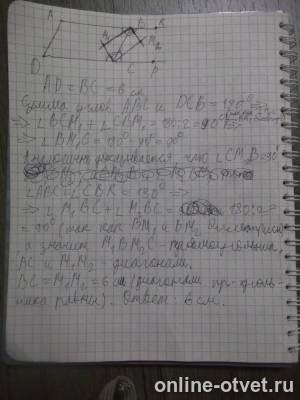 A B K
M₁ M₂
D C P
AD + BC = 6 см
Сумма углов ABC и DCB = 180° ⇒
⇒ ∠BCM₁ + ∠CBM₁ = 180:2 = 90° ⇒
⇒ ∠BM₁C = 180° - 90° = 90°
что ∠CM₂B = 90°
∠ABC + ∠CBK = 180° ⇒
⇒ ∠M₁BC + ∠M₂BC = 180:2
= 90° (так как BM₁ и BM₂ биссектрисы
а значит M₁BM₂C - прямоугольник,
BC и M₁M₂ - диагонали.
BC = M₁M₂ = 6 см (диагонали пр-уголь-
ника равны). Ответ: 6 см.
online-otvet.ru